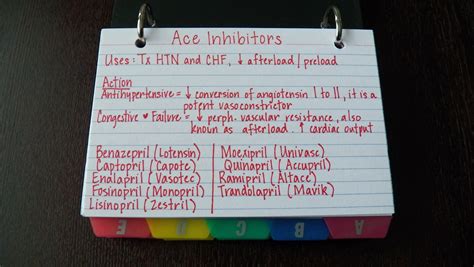 Ace Inhibitors
Uses: Tx HTN and CHF, ↓ afterload/preload
Action
Antihypertensive = ↓ conversion of angiotensin I to II, it is a
potent vasoconstrictor
Congestive ♥ Failure = ↓ perph. vascular resistance, also
known as afterload. ↑ cardiac output
Benazepril (Lotensin) Moexipril (Univasc)
Captopril (Capote) Quinapril (Accupril)
Enalapril (Vasotec) Ramipril (Altace)
Fosinopril (Monopril) Trandolapril (Mavik)
Lisinopril (Zestril)
E D C B A